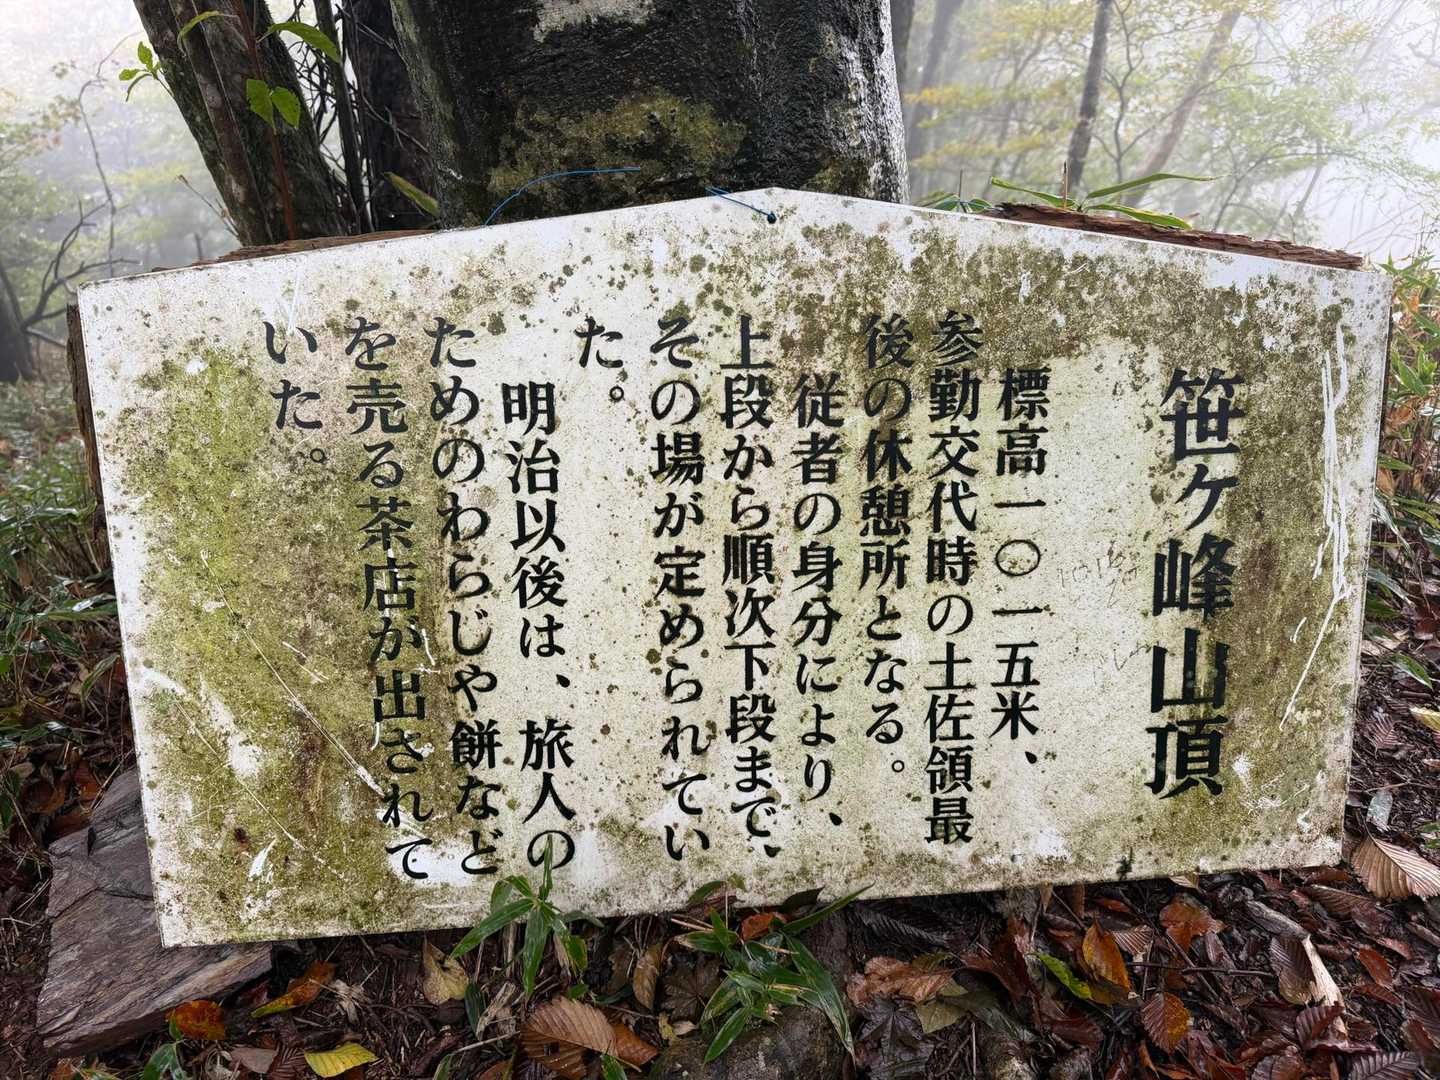 笹ヶ峰山頂
標高一〇一五米、
参勤交代時の土佐領最
後の休憩所となる。
従者の身分により、
上段から順次下段まで、
その場が定められてい
た。
明治以後は、旅人の
ためのわらじや餅など
を売る茶店が出されて
いた。